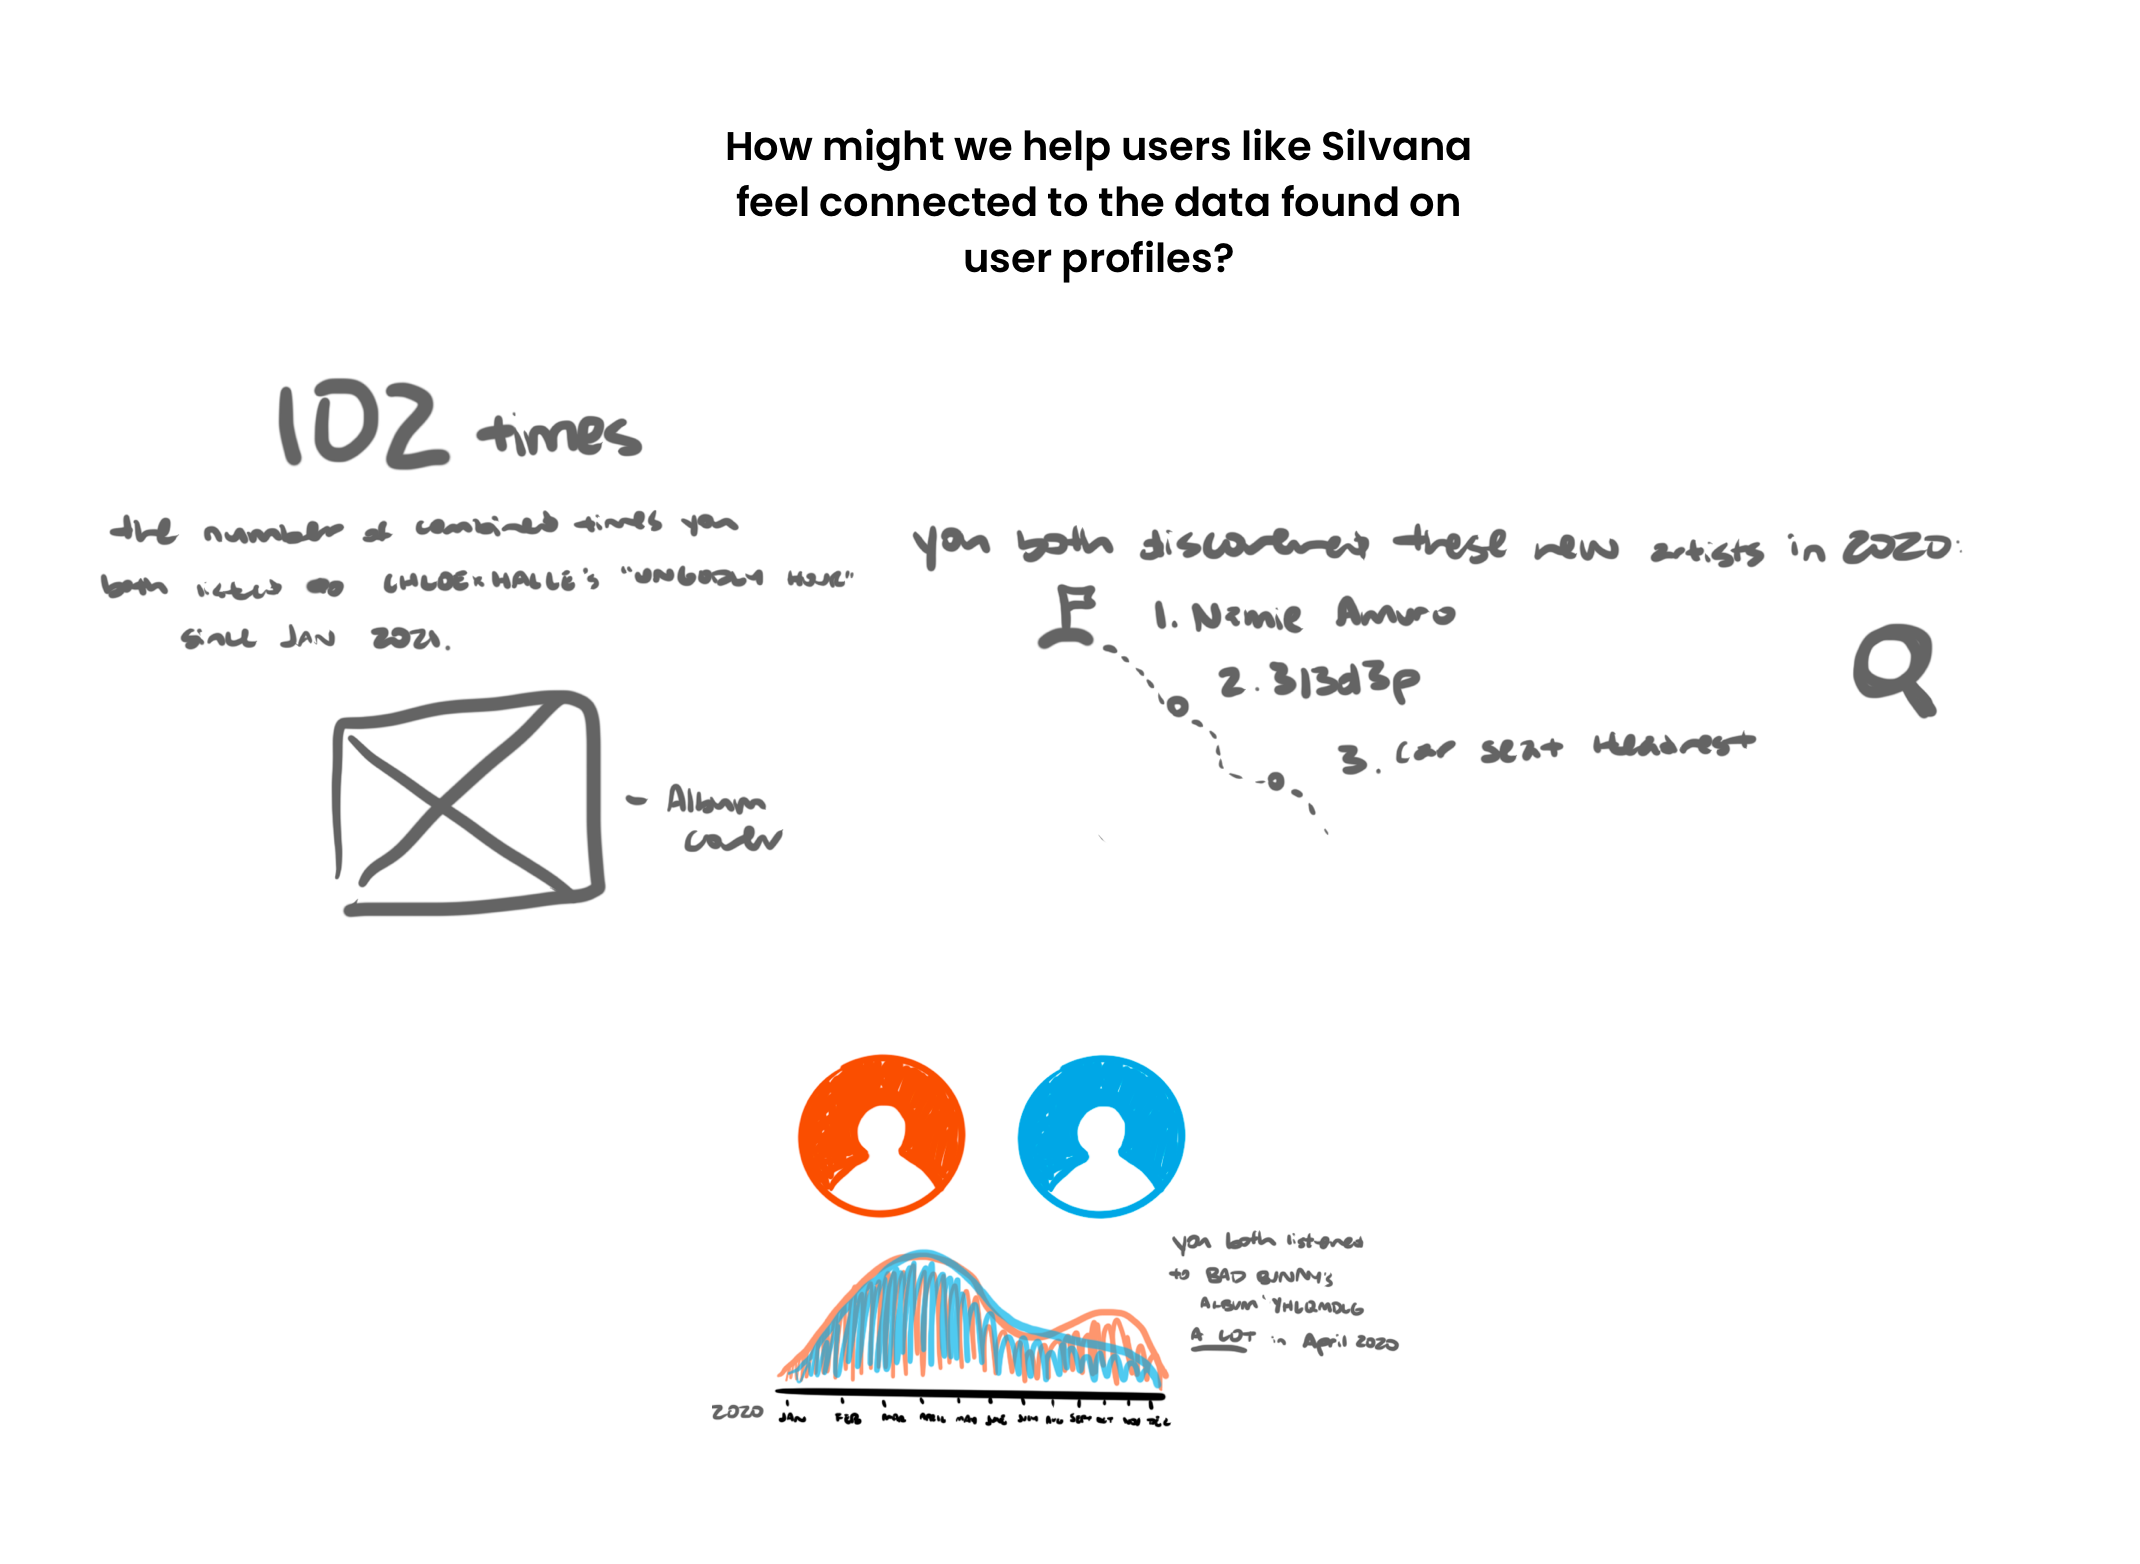 How might we help users like Silvana
feel connected to the data found on
user profiles?
102 times
the number of combined times you
both listed CHLOExHALLE'S "UNGODLY HOUR"
since JAN 2021.
- Album
cover
you both discovered these new artists in 2020:
1. Namie Amuro
2. 313d3p
3. car seat Headrest
you both listened
to BAD BUNNY's
ALBUM YHLQMDLG
A LOT in April 2020
2020 JAN FEB MAR APRIL MAY JUNE JULY AUG SEPT OCT NOV DEC